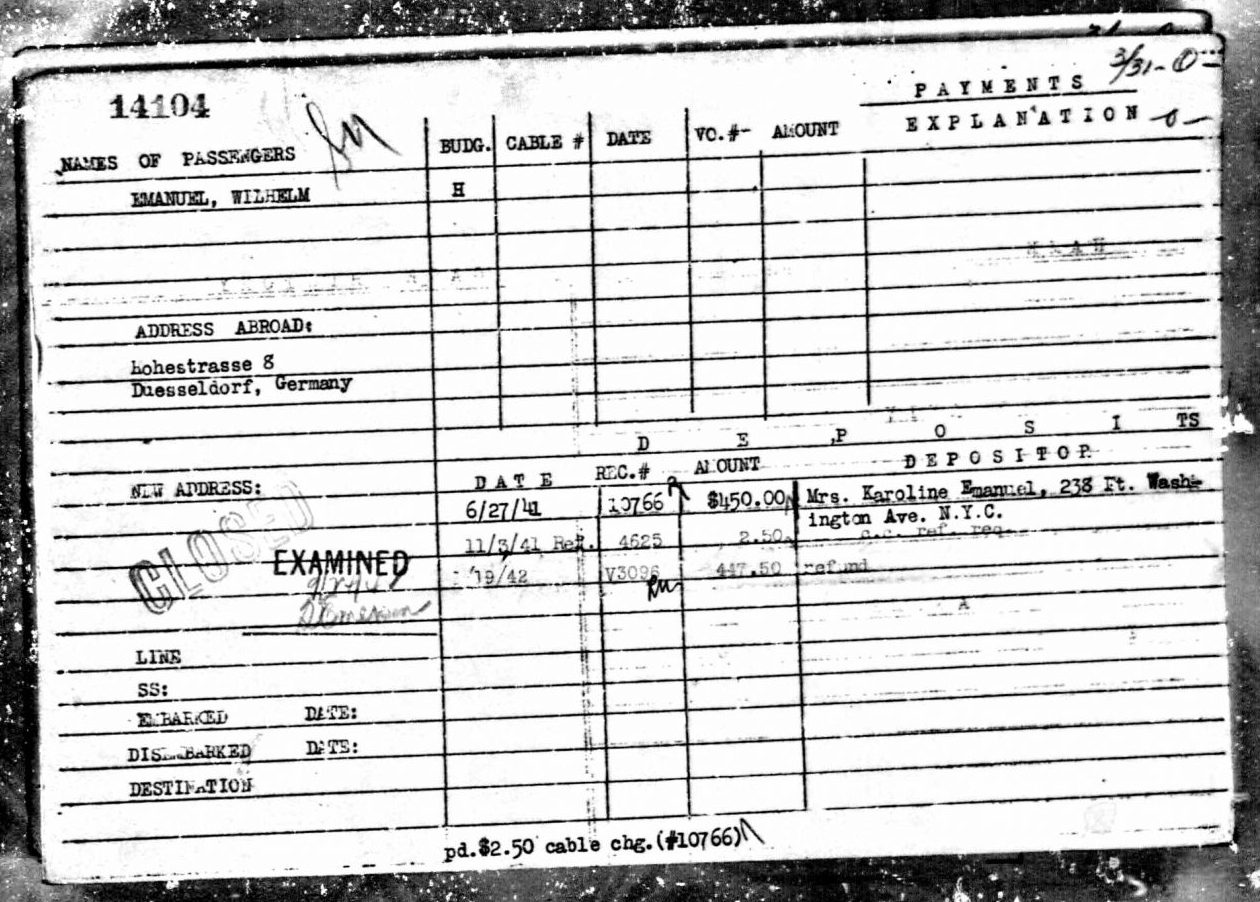 3/31-0-
14104
PAYMENTS
NAMES OF PASSENGERS BUDG. CABLE # DATE VO.#- AMOUNT EXPLANATION -0-
EMANUEL, WILHELM H
ADDRESS ABROAD:
hohestrasse 8
Duesseldorf, Germany
DEPOSITS
NEW ADDRESS: DATE REC.# AMOUNT DEPOSITOR
6/27/41 10766 $450.00 Mrs. Karoline Emanuel, 238 Ft. Wash-
ington Ave. N.Y.C.
11/3/41 Ref. 4625 2.50 c.c. ref. req.
CLOSED
EXAMINED
19/42 V3096 447.50 refund
LINE
SS:
EMBARKED DATE:
DISEMBARKED DATE:
DESTINATION
pd.$2.50 cable chg.(#10766)